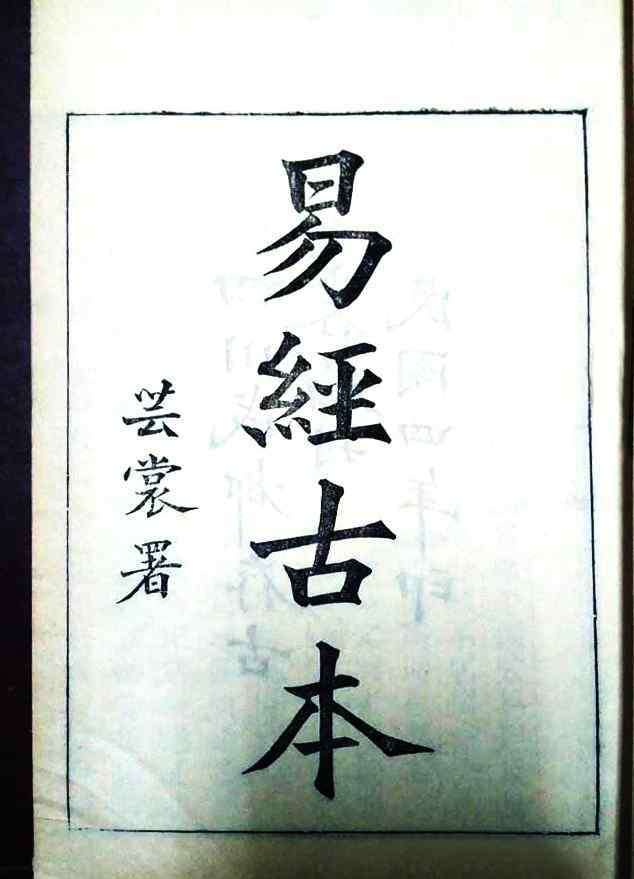 易經古本
芸裳署